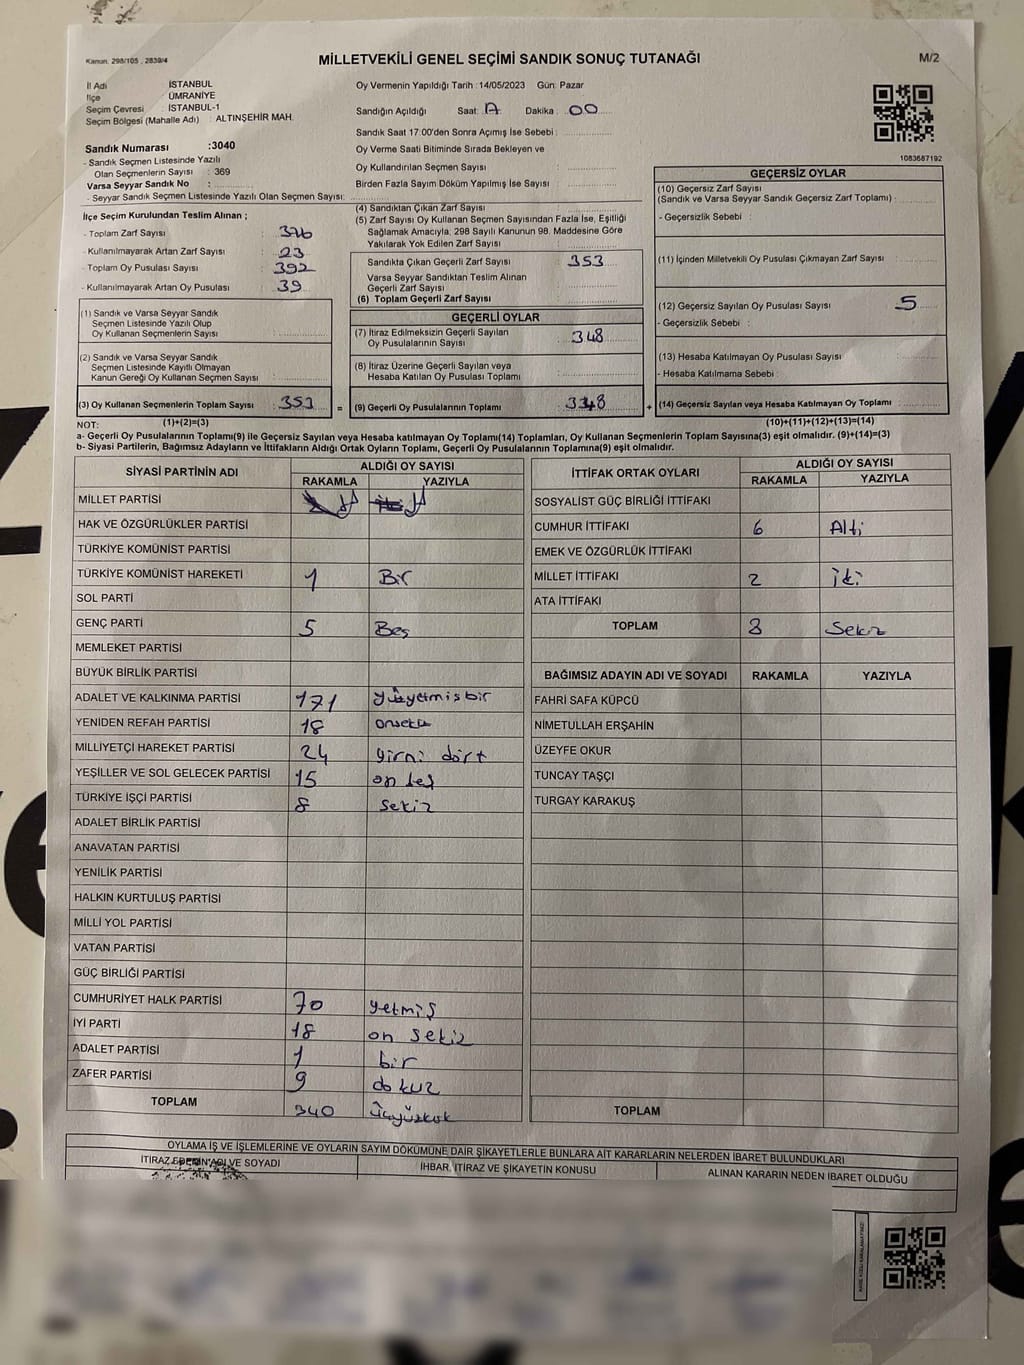 Kanun. 298/105 , 2839/4
MİLLETVEKİLİ GENEL SEÇİMİ SANDIK SONUÇ TUTANAĞI
M/2
İl Adı İSTANBUL
İlçe ÜMRANİYE
Seçim Çevresi : İSTANBUL-1
Seçim Bölgesi (Mahalle Adı) : ALTINŞEHİR MAH.
Oy Vermenin Yapıldığı Tarih :14/05/2023 Gün: Pazar
Sandığın Açıldığı Saat: 17 Dakika : 00
Sandık Saat 17:00'den Sonra Açımış İse Sebebi :
Oy Verme Saati Bitiminde Sırada Bekleyen ve
Oy Kullandırılan Seçmen Sayısı
Birden Fazla Sayım Döküm Yapılmış İse Sayısı
1083687192
Sandık Numarası :3040
- Sandık Seçmen Listesinde Yazılı
Olan Seçmenlerin Sayısı : 369
Varsa Seyyar Sandık No :
- Seyyar Sandık Seçmen Listesinde Yazılı Olan Seçmen Sayısı:
İlçe Seçim Kurulundan Teslim Alınan ;
- Toplam Zarf Sayısı : 376
- Kullanılmayarak Artan Zarf Sayısı : 23
- Toplam Oy Pusulası Sayısı : 392
- Kullanılmayarak Artan Oy Pusulası : 39
(1) Sandık ve Varsa Seyyar Sandık
Seçmen Listesinde Yazılı Olup
Oy Kullanan Seçmenlerin Sayısı :
(2) Sandık ve Varsa Seyyar Sandık
Seçmen Listesinde Kayıtlı Olmayan
Kanun Gereği Oy Kullanan Seçmen Sayısı :
(3) Oy Kullanan Seçmenlerin Toplam Sayısı : 353 =
(4) Sandıktan Çıkan Zarf Sayısı
(5) Zarf Sayısı Oy Kullanan Seçmen Sayısından Fazla İse, Eşitliği
Sağlamak Amacıyla, 298 Sayılı Kanunun 98. Maddesine Göre
Yakılarak Yok Edilen Zarf Sayısı
Sandıkta Çıkan Geçerli Zarf Sayısı : 353
Varsa Seyyar Sandıktan Teslim Alınan
Geçerli Zarf Sayısı
(6) Toplam Geçerli Zarf Sayısı
GEÇERLİ OYLAR
(7) İtiraz Edilmeksizin Geçerli Sayılan
Oy Pusulalarının Sayısı : 348
(8) İtiraz Üzerine Geçerli Sayılan veya
Hesaba Katılan Oy Pusulası Toplamı
(9) Geçerli Oy Pusulalarının Toplamı : 348 +
GEÇERSİZ OYLAR
(10) Geçersiz Zarf Sayısı
(Sandık ve Varsa Seyyar Sandık Geçersiz Zarf Toplamı)
- Geçersizlik Sebebi :
(11) İçinden Milletvekili Oy Pusulası Çıkmayan Zarf Sayısı
(12) Geçersiz Sayılan Oy Pusulası Sayısı : 5
- Geçersizlik Sebebi :
(13) Hesaba Katılmayan Oy Pusulası Sayısı :
- Hesaba Katılmama Sebebi :
(14) Geçersiz Sayılan veya Hesaba Katılmayan Oy Toplamı :
NOT: (1)+(2)=(3) (10)+(11)+(12)+(13)=(14)
a- Geçerli Oy Pusulalarının Toplamı(9) ile Geçersiz Sayılan veya Hesaba katılmayan Oy Toplamı(14) Toplamları, Oy Kullanan Seçmenlerin Toplam Sayısına(3) eşit olmalıdır. (9)+(14)=(3)
b- Siyasi Partilerin, Bağımsız Adayların ve İttifakların Aldığı Ortak Oyların Toplamı, Geçerli Oy Pusulalarının Toplamına(9) eşit olmalıdır.
SİYASİ PARTİNİN ADI ALDIĞI OY SAYISI
RAKAMLA YAZIYLA
MİLLET PARTİSİ
HAK VE ÖZGÜRLÜKLER PARTİSİ
TÜRKİYE KOMÜNİST PARTİSİ
TÜRKİYE KOMÜNİST HAREKETİ 1 Bir
SOL PARTİ
GENÇ PARTİ 5 Beş
MEMLEKET PARTİSİ
BÜYÜK BİRLİK PARTİSİ
ADALET VE KALKINMA PARTİSİ 171 yüzyetmisbir
YENİDEN REFAH PARTİSİ 18 onsekiz
MİLLİYETÇİ HAREKET PARTİSİ 24 yirmi dört
YEŞİLLER VE SOL GELECEK PARTİSİ 15 on beş
TÜRKİYE İŞÇİ PARTİSİ 8 sekiz
ADALET BİRLİK PARTİSİ
ANAVATAN PARTİSİ
YENİLİK PARTİSİ
HALKIN KURTULUŞ PARTİSİ
MİLLİ YOL PARTİSİ
VATAN PARTİSİ
GÜÇ BİRLİĞİ PARTİSİ
CUMHURİYET HALK PARTİSİ 70 yetmiş
İYİ PARTİ 18 on sekiz
ADALET PARTİSİ 1 bir
ZAFER PARTİSİ 9 dokuz
TOPLAM 340 üçyüzkırk
İTTİFAK ORTAK OYLARI ALDIĞI OY SAYISI
RAKAMLA YAZIYLA
SOSYALİST GÜÇ BİRLİĞİ İTTİFAKI
CUMHUR İTTİFAKI 6 Alti
EMEK VE ÖZGÜRLÜK İTTİFAKI
MİLLET İTTİFAKI 2 iki
ATA İTTİFAKI
TOPLAM 8 Sekiz
BAĞIMSIZ ADAYIN ADI VE SOYADI RAKAMLA YAZIYLA
FAHRİ SAFA KÜPCÜ
NİMETULLAH ERŞAHİN
ÜZEYFE OKUR
TUNCAY TAŞÇI
TURGAY KARAKUŞ
TOPLAM
OYLAMA İŞ VE İŞLEMLERİNE VE OYLARIN SAYIM DÖKÜMÜNE DAİR ŞİKAYETLERLE BUNLARA AİT KARARLARIN NELERDEN İBARET BULUNDUKLARI
İTİRAZ EDENİN ADI VE SOYADI
İHBAR, İTİRAZ VE ŞİKAYETİN KONUSU
ALINAN KARARIN NEDEN İBARET OLDUĞU